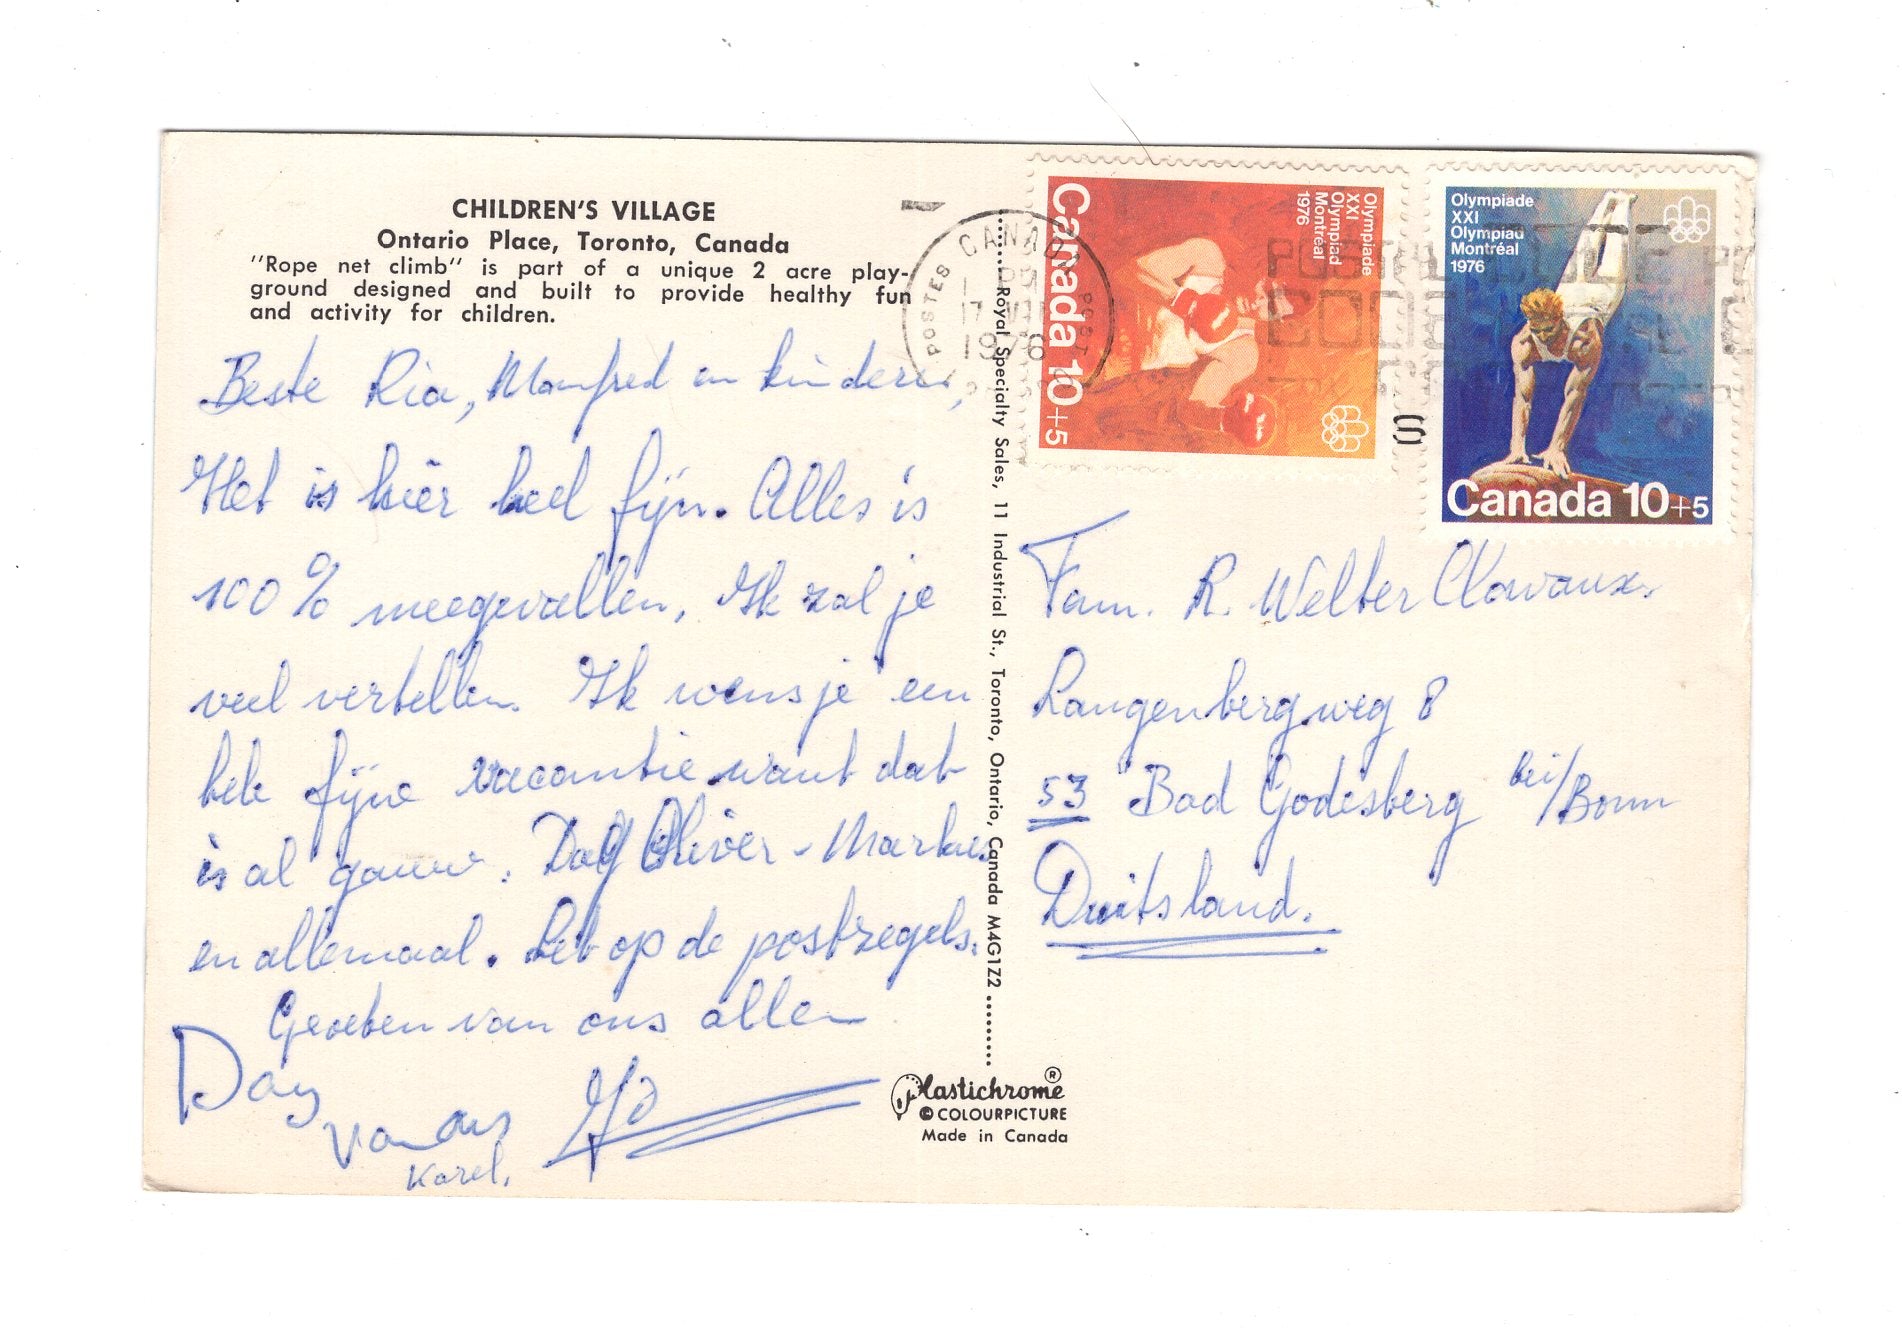 CHILDREN'S VILLAGE
Ontario Place, Toronto, Canada
"Rope net climb" is part of a unique 2 acre play-
ground designed and built to provide healthy fun
and activity for children.
Beste Ria, Manfred en kinderen,
Het is hier heel fijn. Alles is
100 % meegevallen, Ik zal je
veel vertellen. Ik wens je een
hele fijne vacantie want dat
is al gauw. Dag Oliver - Markus
en allemaal. Let op de postzegels.
Groeten van ons allen
Day
van ons
Karel.
Royal Specialty Sales, 11 Industrial St., Toronto, Ontario, Canada M4G1Z2
Plastichrome®
© COLOURPICTURE
Made in Canada
CANADA
POSTES POST
17 VII
1976
Olympiade
XXI
Olympiad
Montréal
1976
Canada 10+5
POSTAL CODE
(S)
Olympiade
XXI
Olympiad
Montréal
1976
Canada 10+5
Fam. R. Welter
Langenbergweg 8
53 Bad Godesberg bei/Bonn
Duitsland.